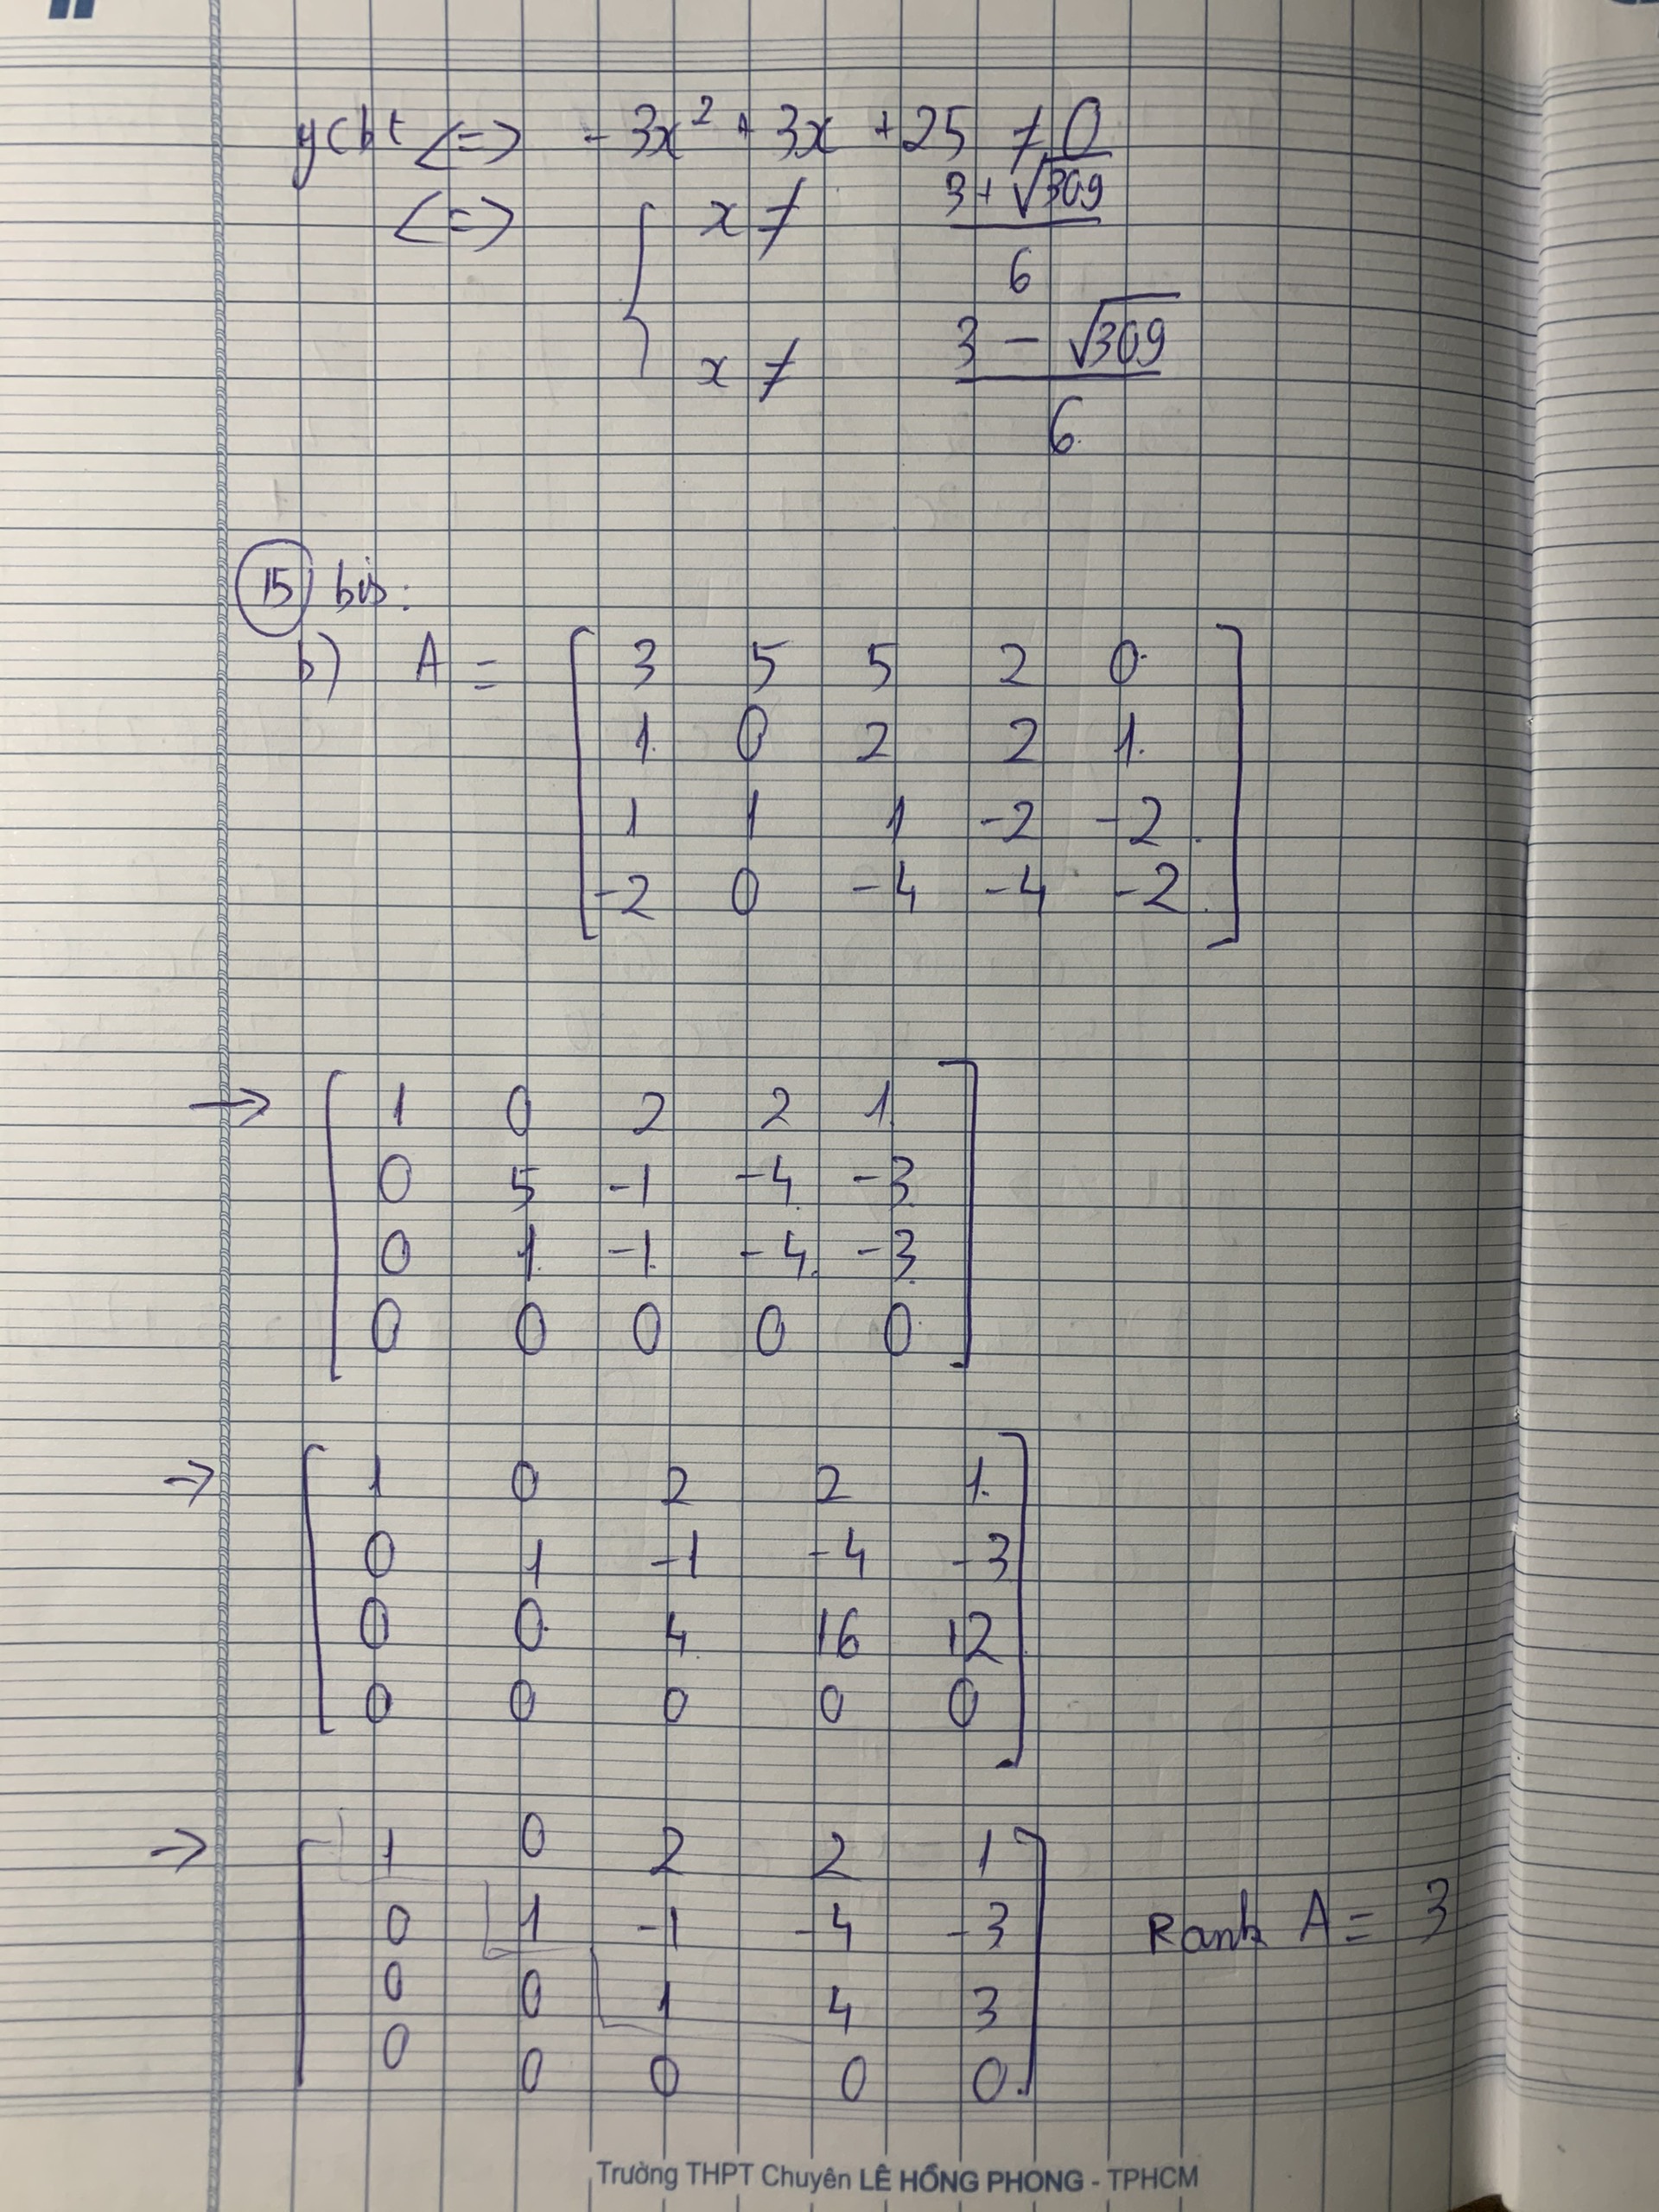 ycbt <=> - 3x² + 3x + 25 ≠ 0
<=> { x ≠ (3 + √309)/6
x ≠ (3 - √309)/6
(15) bis:
b) A = [ 3 5 5 2 0
1 0 2 2 1
1 1 1 -2 -2
-2 0 -4 -4 -2 ]
→ [ 1 0 2 2 1
0 5 -1 -4 -3
0 1 -1 -4 -3
0 0 0 0 0 ]
→ [ 1 0 2 2 1
0 1 -1 -4 -3
0 0 4 16 12
0 0 0 0 0 ]
→ [ 1 0 2 2 1
0 1 -1 -4 -3 Rank A = 3
0 0 1 4 3
0 0 0 0 0 ]
Trường THPT Chuyên LÊ HỒNG PHONG - TPHCM